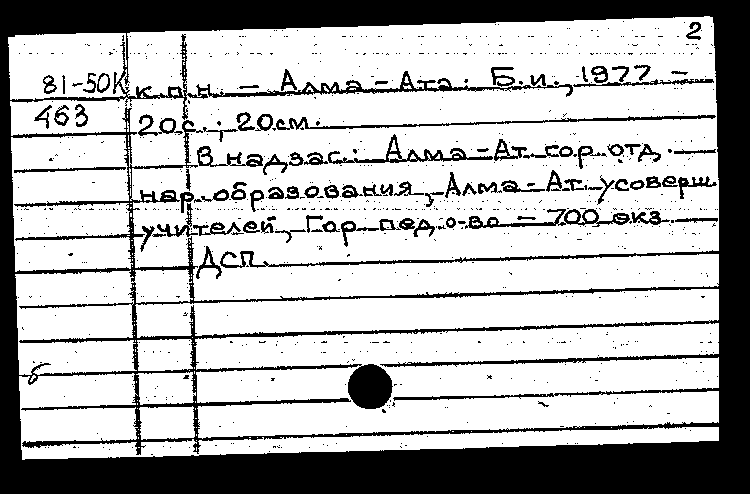 2
81-50К к.п.н. – Алма-Ата: Б.и., 1977 –
463 20с.; 20см.
В надзаг.: Алма-Ат. гор. отд.
нар. образования, Алма-Ат. усоверш.
учителей, Гор. пед. о-во – 700 экз
ДСП.
б